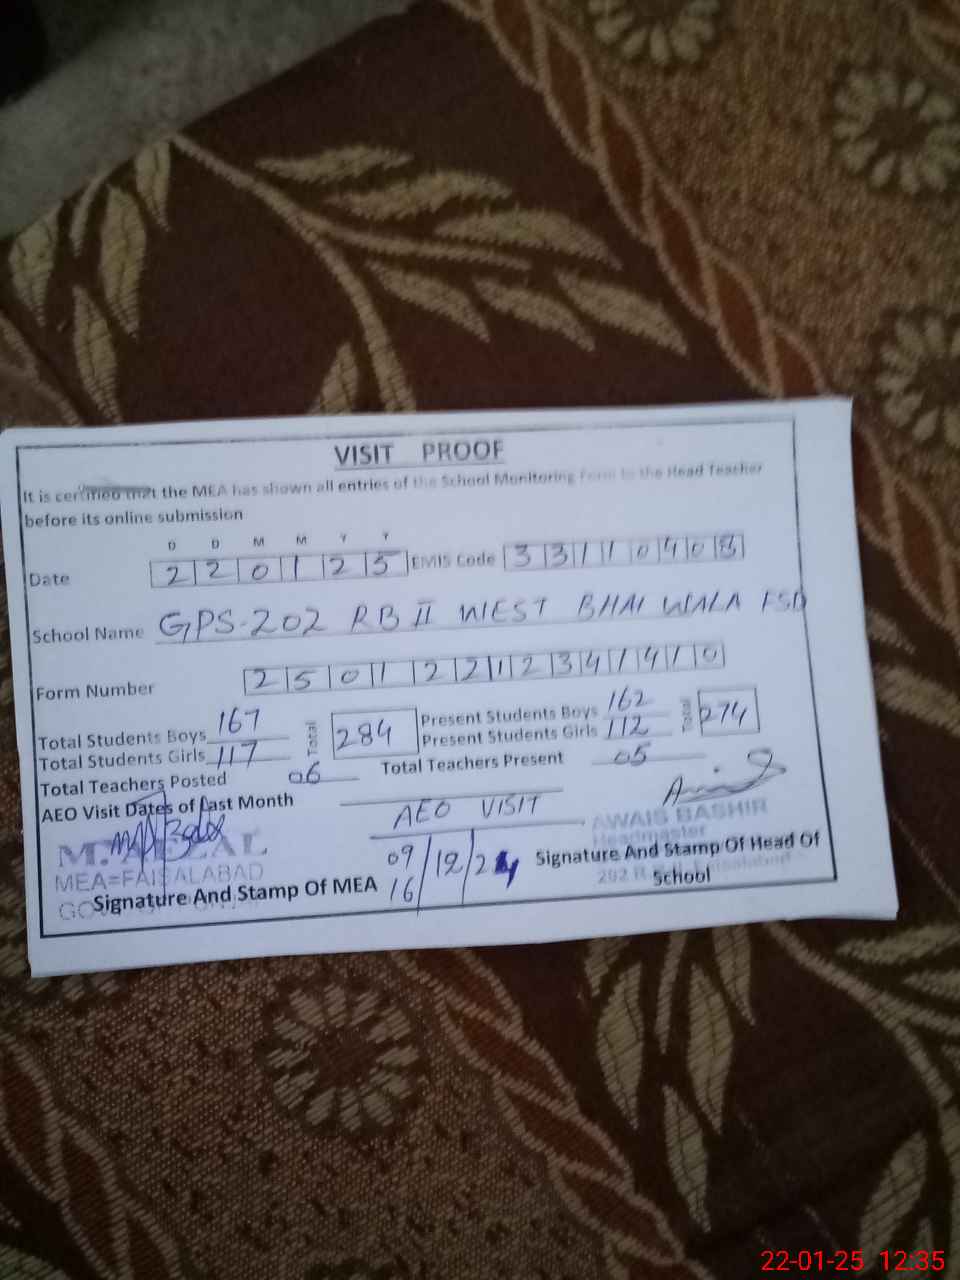 VISIT PROOF
It is certified that the MEA has shown all entries of the School Monitoring Form to the Head Teacher
before its online submission
D D M M Y Y
Date 2 2 0 1 2 5 EMIS Code 3 3 1 1 0 4 0 8
School Name GPS-202 RB II WEST BHAI WALA FSD
Form Number 2 5 0 1 2 2 1 2 3 4 1 4 1 0
Total Students Boys 167 Total 284 Present Students Boys 162 Total 274
Total Students Girls 117 Present Students Girls 112
Total Teachers Posted 06 Total Teachers Present 05
AEO Visit Dates of Last Month AEO VISIT
09/12/24
16
M. AFZAL
MEA=FAISALABAD
AWAIS BASHIR
Headmaster
Signature And Stamp Of MEA
Signature And Stamp Of Head Of
School
22-01-25 12:35